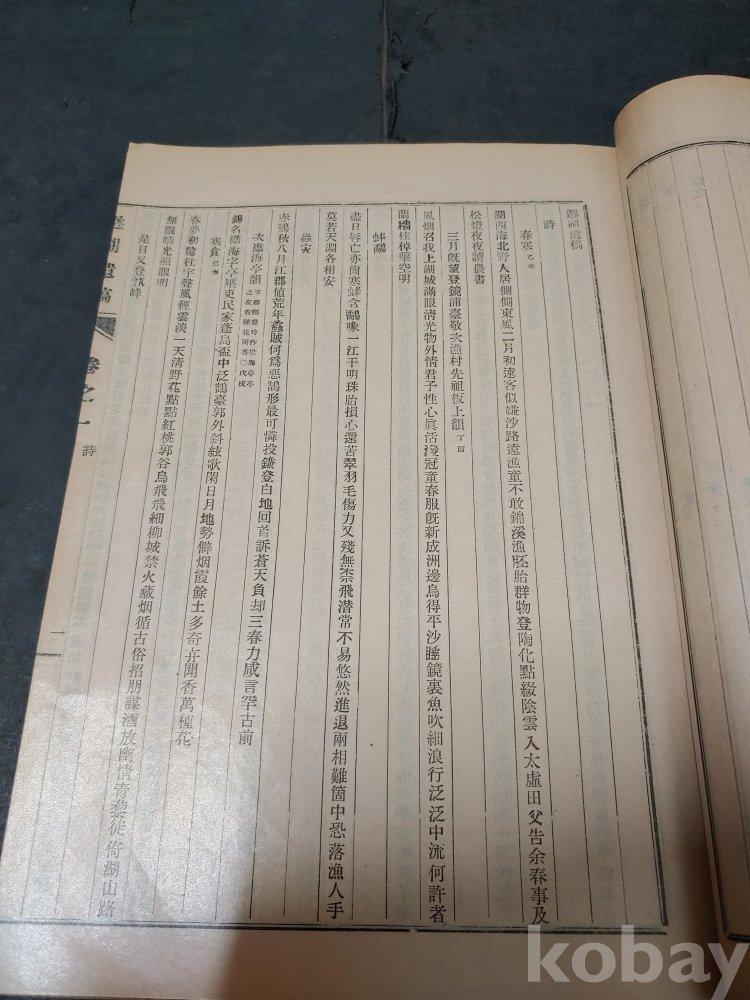 遺稿
詩
春寒 乙未
湖西海北野人居側側東風二月初遠客似嫌沙路遠漁童不敢錦溪漁胚胎群物登陶化點綴陰雲入太虛田父告余春事及
松燈夜夜讀農書
三月旣望登鏡浦臺敬次漁村先祖板上韻 丁酉
風烟召我上湖城滿眼淸光物外情君子性心眞活潑冠童春服旣新成洲邊鳥得平沙睡鏡裏魚吹細浪行泛泛中流何許者
蘭檣桂棹擊空明
蚌鷸
盡日辱亡亦齒寒蚌含鷸喙一江干明珠胎損心還苦翠羽毛傷力又殘無柰飛潛常不易悠然進退兩相難箇中恐落漁人手
莫若天淵各相安
蟲灾
赤鷄秋八月江郡値荒年蟊賊何爲惡鵠形最可憐投鎌登白地回首訴蒼天負却三春力咸言罕古前
次襟海亭韻 戊戌
錫名襟海字亭壓東民家蓬島盃中泛鶴臺郭外斜絃歌閑日月地勢僻烟霞餘土多奇卉聞香萬種花
寒食 己亥
春夢初驚杜宇聲風輕雲淡一天淸野花點點紅桃郭谷鳥飛飛細柳城禁火藏烟循古俗招朋謀酒放幽情靑藜徒倚湖山路
無限晴光照眼明
是日又登
湖遺稿
卷之一
詩
一
kobay